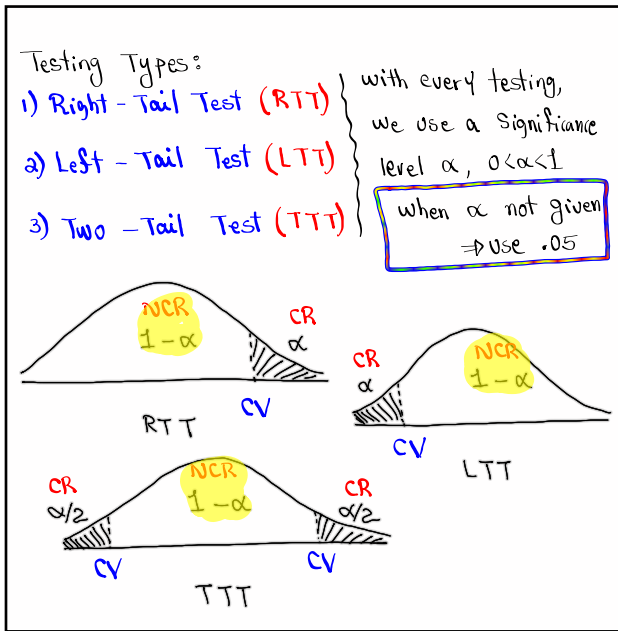 Testing Types:
1) Right-Tail Test (RTT)
2) Left-Tail Test (LTT)
3) Two-Tail Test (TTT)
with every testing,
we use a Significance
level α, 0<α<1
when α not given
⇒ use .05
NCR
1-α
CR
α
CV
RTT
CR
α
NCR
1-α
CV
LTT
CR
α/2
NCR
1-α
CR
α/2
CV
CV
TTT